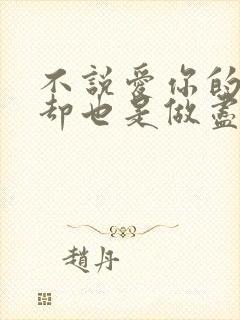 不說愛你的
却也是做盡
趙丹